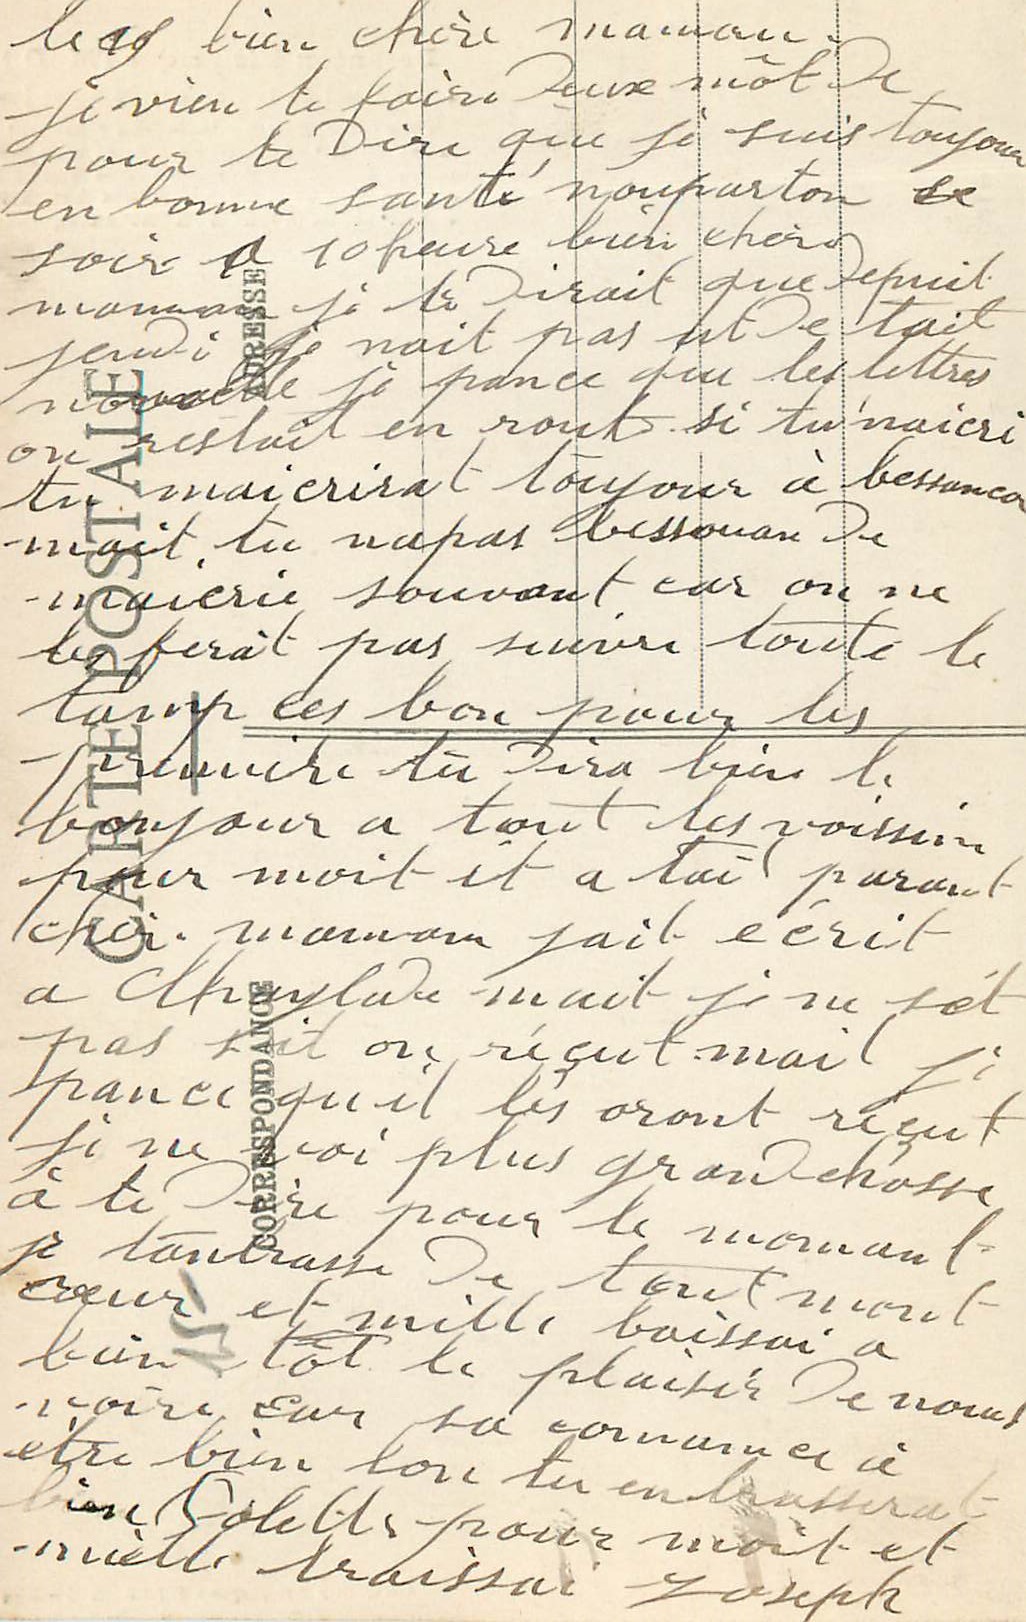 le 19 bien chère maman.
je vien te faire Deux môt De
pour te Dire que je suis toujour
en bonne santé nouparton ce
soir a 10 heure bien chère
maman je te Dirait que Depuit
jeudi je nait pas ut De tait
nouvelle je pance que les lettres
on restait en route si tu naicri
tu maicrirat toujour à bessancon
mait tu napas bessouan De
maicrie souvant car on ne
les ferat pas suivre toute le
tamp ces bon pour les
premiere tu Dira bien le
bonjour a tout les voissin
pour moit et a tai parant
cheir maman jait eécrit
a mait je ne sét
pas sit on réçut mait je
pance quil lés oront réçut
je ne voi plus grand chosse
à te Dire pour le momant
je tanbrasse De tout mont
coeur et mille baissai a
bien tôt le plaisir De nous
voire car sa comance à
être bien lon tu enbrasserat
bien Colette pour moit et
mille braissai Joseph
CARTE POSTALE
ADRESSE
CORRESPONDANCE